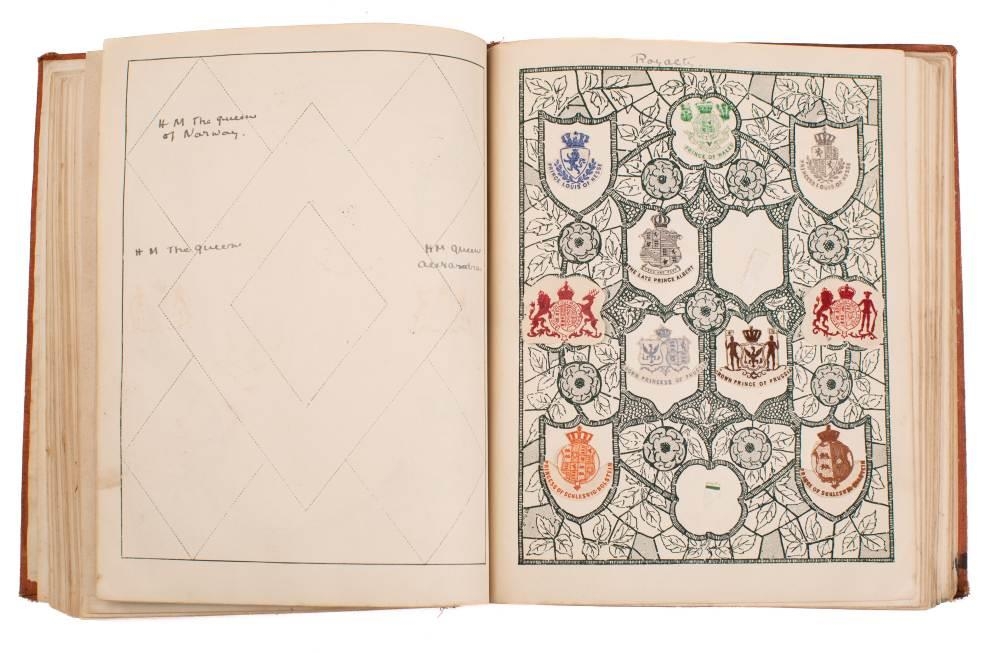 H M The queen
of Norway.
H M The queen
H M queen
alexandra
Royalty
PRINCE OF WALES
PRINCE LOUIS OF HESSE
PRINCESS LOUIS OF HESSE
THE LATE PRINCE ALBERT
CROWN PRINCESS OF PRUSSIA
CROWN PRINCE OF PRUSSIA
PRINCESS OF SCHLESWIG HOLSTEIN
PRINCE OF SCHLESWIG HOLSTEIN